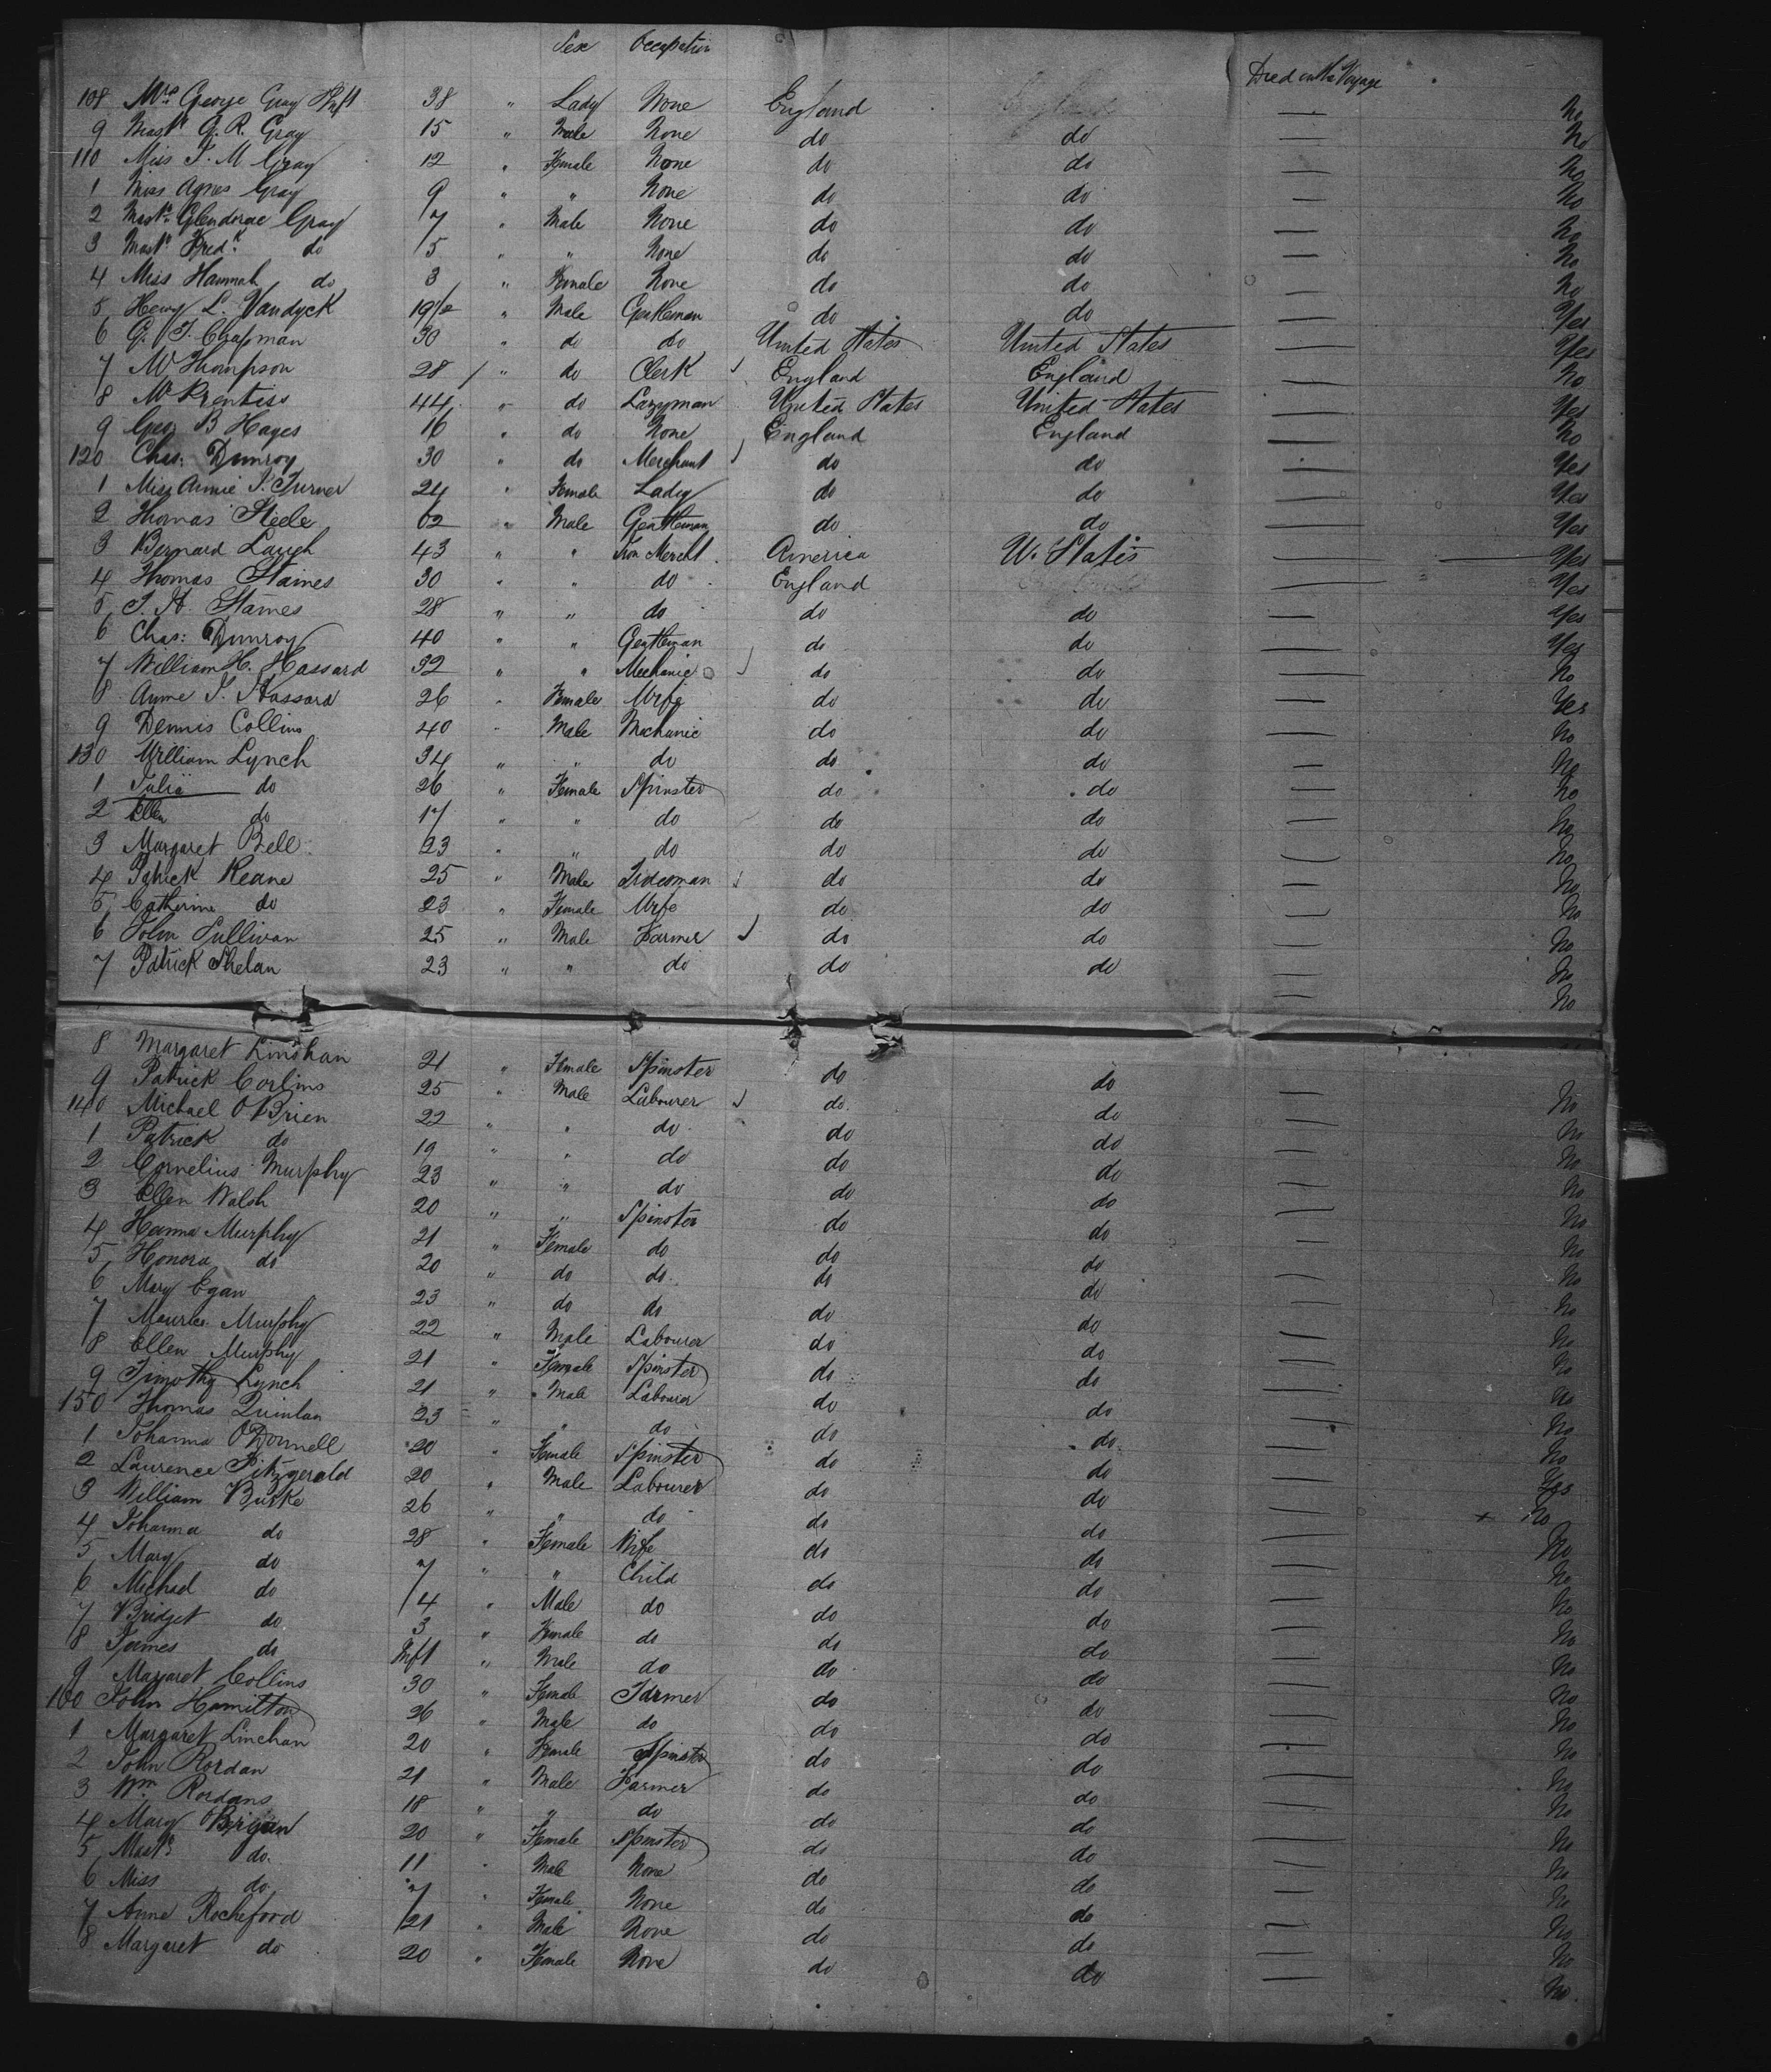 Sex Occupation Died on the Voyage
108 Mrs George Gray & Inft 38 " Lady None England — No
9 Mastr G. R. Gray 15 " Male None do do — No
110 Miss J. M Gray 12 " Female None do do — No
1 Miss Agnes Gray 9 " " None do do — No
2 Mastr Glendorae Gray 7 " Male None do do — No
3 Mastr Fredk do 5 " " None do do — No
4 Miss Hannah do 3 " Female None do do — No
5 Henry L. Vandyck 19 1/2 " Male Gentleman do do — Yes
6 G. T. Chapman 30 " do do United States United States — Yes
7 W Thompson 28 / " do Clerk England England — No
8 Mr Prentiss 44 " do United States United States — Yes
9 Geog B Hayes 16 " do None England England — No
120 Chas: Dunroy 30 " do Merchant do do — Yes
1 Miss Annie J. Turner 24 " Female Lady do do — Yes
2 Thomas Steele 62 " Male Gentleman do do — Yes
3 Bernard Laugh 43 " " Iron Mercht. America U. States — Yes
4 Thomas Staines 30 " " do England — Yes
5 J. H. Staines 28 " " do do do — Yes
6 Chas: Dunroy 40 " " Gentleman do do — Yes
7 William H. Hassard 32 " " Mechanic do do — No
8 Anne J. Hassard 26 " Female Wife do do — Yes
9 Dennis Collins 40 " Male Mechanic do do — No
130 William Lynch 34 " " do do do — No
1 Julia do 26 " Female Spinster do do — No
2 Ellen do 17 " " do do do — No
3 Margaret Bell 23 " " do do do — No
4 Patrick Keane 25 " Male do do — No
5 Catherine do 23 " Female Wife do do — No
6 John Sullivan 25 " Male Farmer do do — No
7 Patrick Phelan 23 " " do do do — No
— No
8 Margaret Linehan 21 " Female Spinster do do — No
9 Patrick Corlins 25 " Male Labourer do do — No
140 Michael O'Brien 22 " " do do do — No
1 Patrick do 19 " " do do do — No
2 Cornelius Murphy 23 " " do do do — No
3 Ellen Walsh 20 " " Spinster do do — No
4 Hanna Murphy 21 " Female do do do — No
5 Honora do 20 " do do do do — No
6 Mary Egan 23 " do do do do — No
7 Maurice Murphy 22 " Male Labourer do do — No
8 Ellen Murphy 21 " Female Spinster do do — No
9 Timothy Lynch 21 " Male Labourer do do — No
150 Thomas Quinlan 23 " " do do do — No
1 Johanna O'Donnell 20 " Female Spinster do do — Yes
2 Laurence Fitzgerald 20 " Male Labourer do do — + No
3 William Burke 26 " " do do do — No
4 Johanna do 28 " Female Wife do do — No
5 Mary do 7 " " Child do do — No
6 Michael do 4 " Male do do do — No
7 Bridget do 3 " Female do do do — No
8 James do Inft " Male do do do — No
9 Margaret Collins 30 " Female Farmer do do — No
160 John Hamilton 26 " Male do do do — No
1 Margaret Linehan 20 " Female Spinster do do — No
2 John Rordan 21 " Male Farmer do do — No
3 Wm. Rordans 18 " " do do do — No
4 Mary O'Brien 20 " Female Spinster do do — No
5 Mastr do 11 " Male None do do — No
6 Miss do 7 " Female None do do — No
7 Anne Rocheford 21 " Male None do do — No
8 Margaret do 20 " Female None do do — No